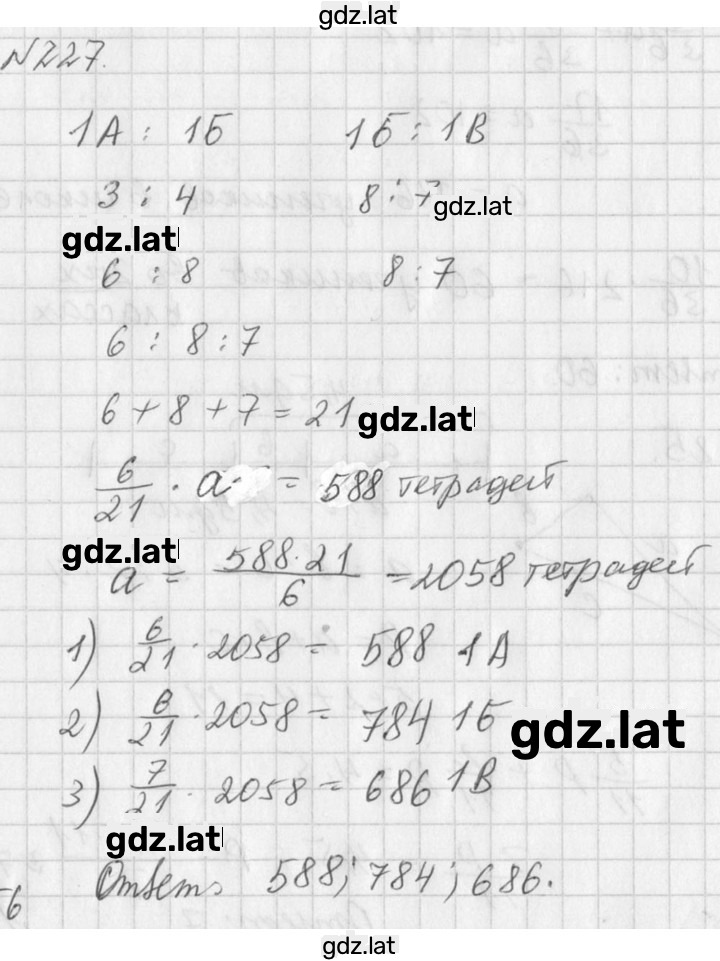 gdz.lat
№227.
1А : 1Б 1Б : 1В
3 : 4 8 : 7
gdz.lat
gdz.lat
6 : 8 8 : 7
6 : 8 : 7
6 + 8 + 7 = 21
gdz.lat
6/21 · a = 588 тетрадей
gdz.lat
a = 588·21/6 = 2058 тетрадей
1) 6/21 · 2058 = 588 1А
2) 8/21 · 2058 = 784 1Б
gdz.lat
3) 7/21 · 2058 = 686 1В
gdz.lat
Ответ: 588; 784; 686.
gdz.lat